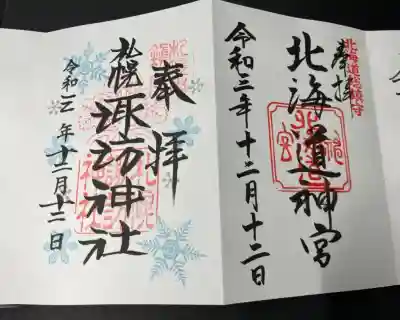 北海道総鎮守
奉拝
北海道神宮
令和三年十二月十二日
奉拝
札幌諏訪神社
令和三年十二月十二日